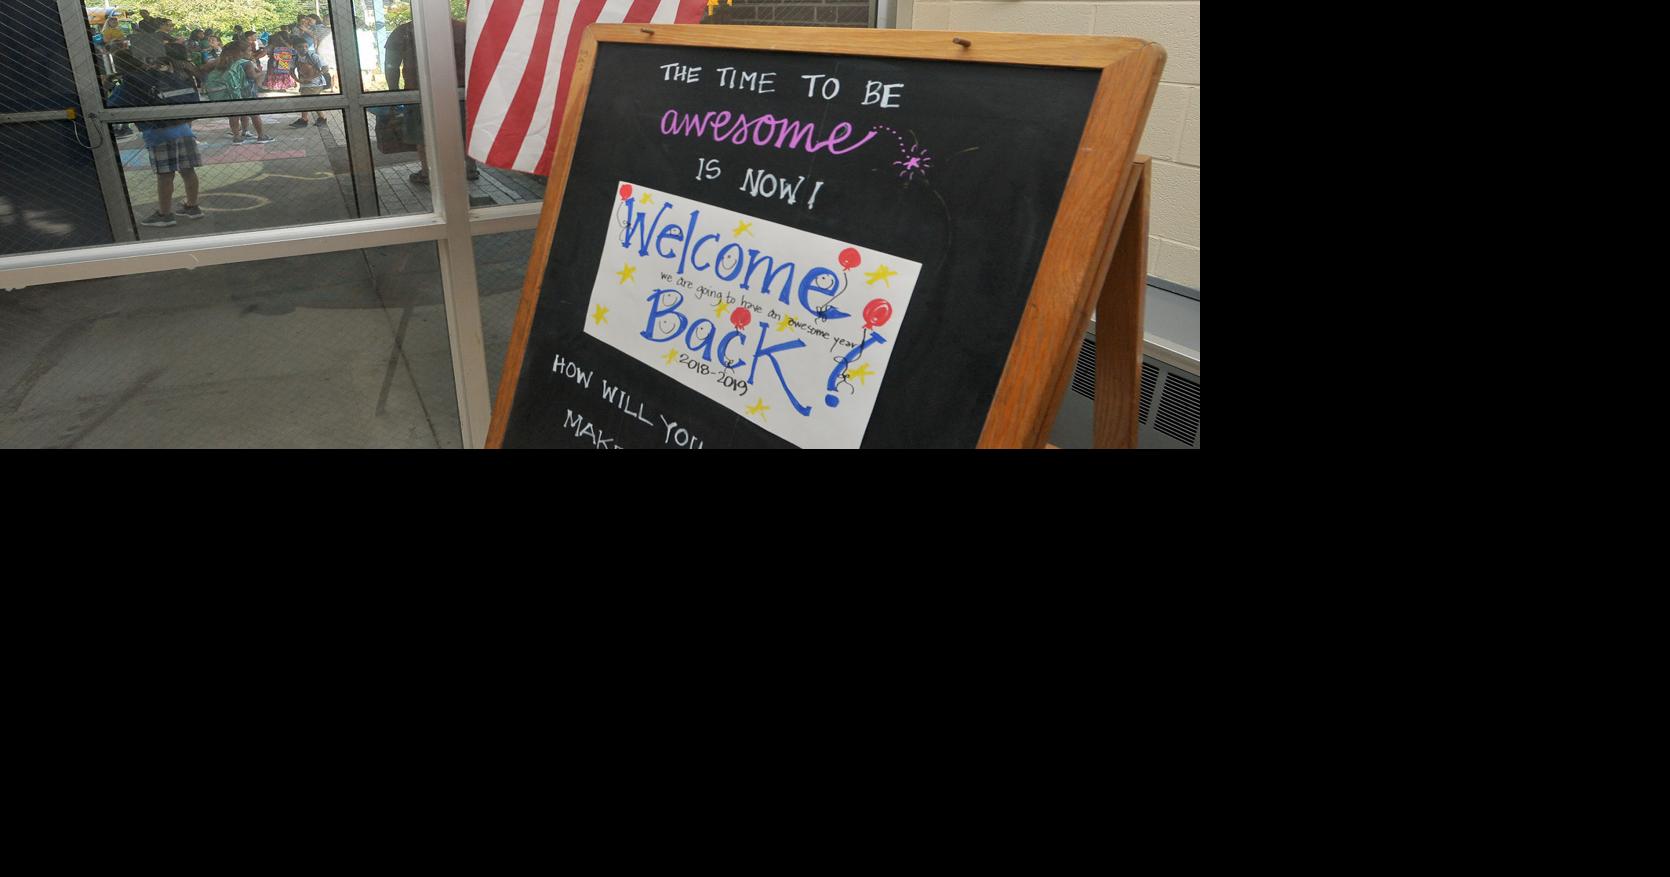 THE TIME TO BE
awesome
IS NOW!
Welcome
we are going to have an awesome year
Back!
2018-2019
HOW WILL YOU